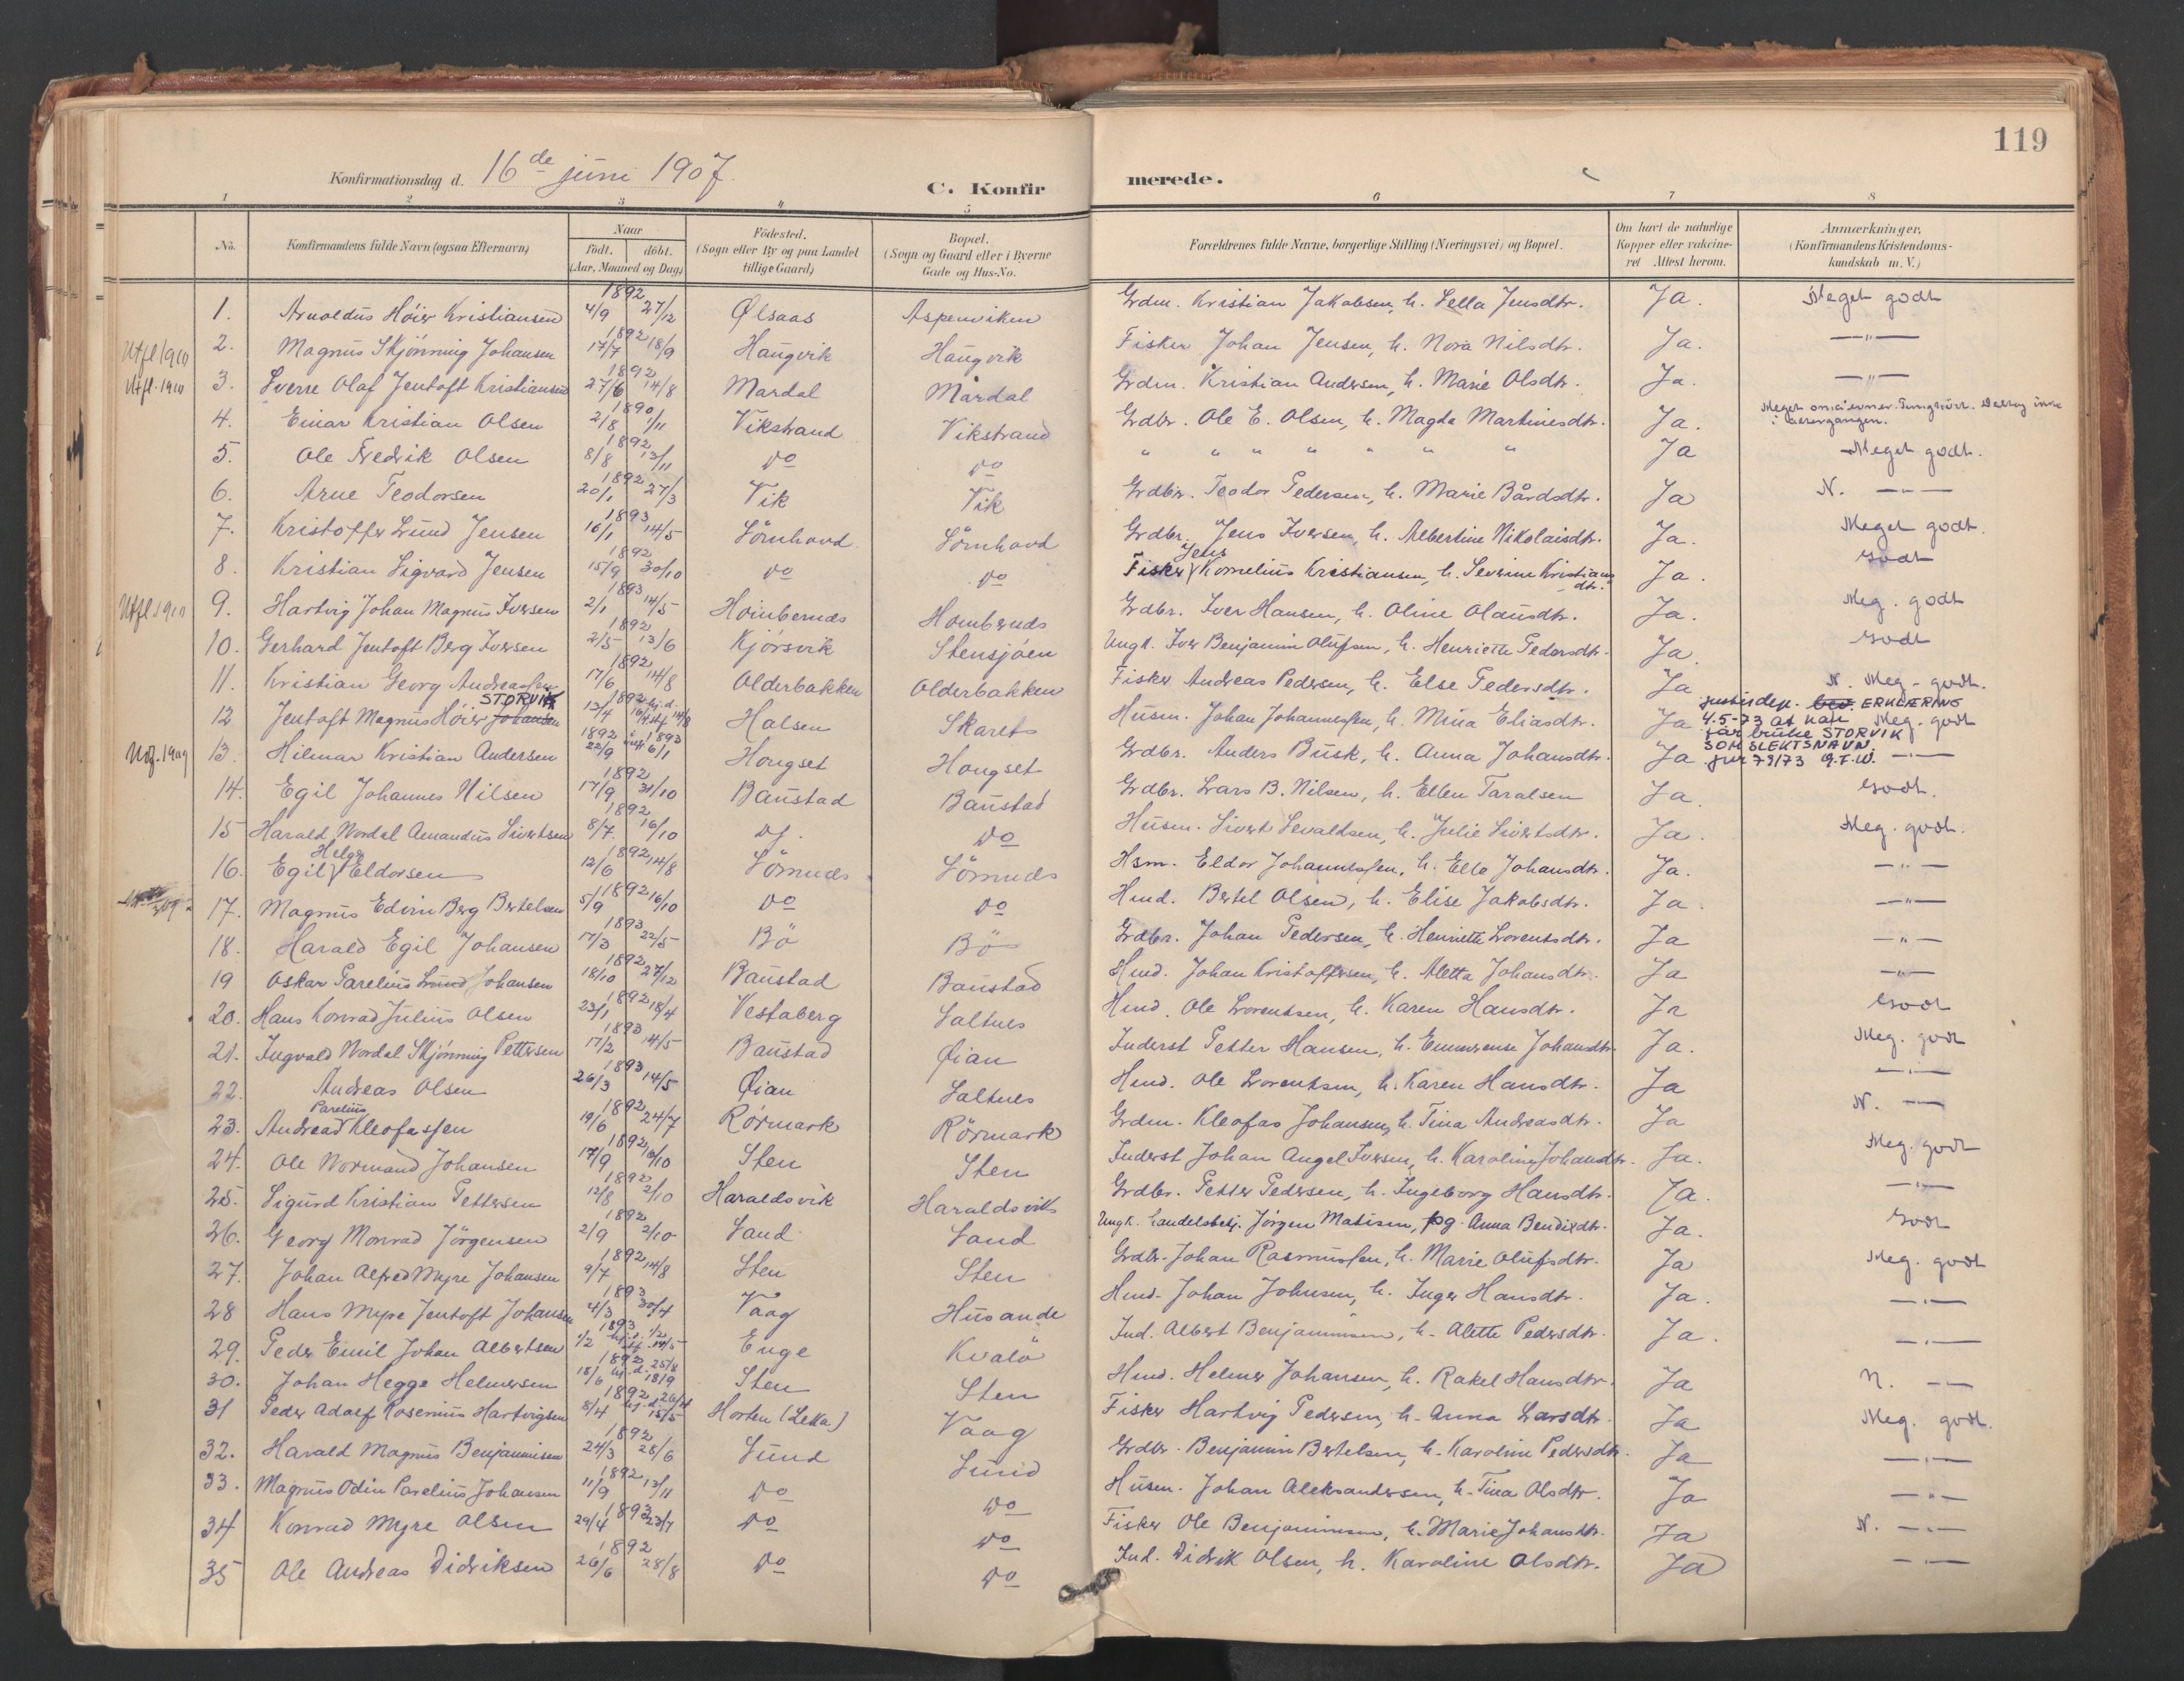 119
Konfirmationsdag d. 16de juni 1907.
C. Konfirmerede.
1 2 3 4 5 6 7 8
No. Konfirmandens fulde Navn (ogsaa Efternavn) Naar födt. döbt. (Aar, Maaned og Dag) Födested. (Sogn eller By og paa Landet tillige Gaard) Bopæl. (Sogn og Gaard eller i Byerne Gade og Hus-No. Forældrenes fulde Navne, borgerlige Stilling (Næringsvei) og Bopæl. Om havt de naturlige Kopper eller vakcineret Attest herom. Anmærkninger, (Konfirmandens Kristendomskundskab m. V.)
1. Arnoldus Höier Kristiansen 1892 4/9 27/12 Ølsaas Aspenviken Grdm. Kristian Jakobsen, h. Sella Jensdtr. Ja. Meget godt
Utfl 1910 2. Magnus Skjönning Johansen 1892 17/7 18/9 Haugvik Haugvik Fisker Johan Jensen, h. Nora Nilsdtr. Ja. —„—
Utfl. 1910 3. Sverre Olaf Jentoft Kristiansen 1892 27/6 14/8 Mardal Mårdal Grdm. Kristian Andersen, h. Marie Olsdtr. Ja. —„—
4. Einar Kristian Olsen 1890 2/8 1/11 Vikstrand Vikstrand Grdbr. Ole E. Olsen, h. Magda Martinesdtr. Ja. Meget små evner. Tunghört. Deltog ikke i
5. Ole Fredrik Olsen 1892 8/8 13/11 Do Do " " " " " " " Ja Meget godt.
6. Arne Teodorsen 1892 20/1 27/3 Vik Vik Grdbr. Teodor Pedersen, h. Marie Bårdsdtr. Ja N. —„—
7. Kristoffer Lund Jensen 1893 16/1 14/5 Sörnhovd Sörnhovd Grdbr. Jens Iversen, h. Albertine Nikolaisdtr. Ja. Meget godt.
8. Kristian Sigvard Jensen 1892 15/9 30/10 Do Do Fisker Jens Kornelius Kristiansen, h. Severine Kristiansdtr. Ja. Godt
Utfl 1910 9. Hartvig Johan Magnus Iversen 1893 2/1 14/5 Hombornes Hombernes Grdbr. Iver Hansen, h. Oline Olausdtr. Ja. Meg. godt
10. Gerhard Jentoft Berg Iversen 1892 2/5 13/6 Kjörsvik Stensjöen Ungk. Iver Benjamin Olufsen, h. Henriette Pedersdtr. Ja. Godt
11. Kristian Georg Andreassen 1892 17/6 14/8 Olderbakken Olderbakken Fisker Andreas Pedersen, h. Else Pedersdtr. Ja N. Meg. godt.
12 Jentoft Magnus Höier Johansen STORVIK 1892 13/4 hj.d. 16/4 stf. 14/8 Halsen Skarets Husm. Johan Johannessen, h. Mina Eliasdtr. Ja Meg. godt
justisdep. bev. ERKLÆRING
4.5-73 at han
får bruke STORVIK
SOM SLEKTSNAVN.
jnr 79/73 G.F.W.
13. Hilmar Kristian Andersen 1892 22/9 1893 6/1 Hongset Hongset Grdbr. Anders Busk, h. Anna Johansdtr. Ja —„—
14. Egil Johannes Nilsen 1892 17/9 31/10 Baustad Baustad Grdbr. Lars B. Nilsen, h. Ellen Taralsen Ja. Godt.
15 Harald Nordal Amandus Sivertsen 1892 8/7 16/10 Do. Do Husm. Sivert Sevaldsen, h. Julie Sivertsdtr. Ja. Meg. godt.
16. Egil Helge Eldorsen 1892 12/6 14/8 Sörnnes Sömnes Hsm. Eldor Johannessen, h. Ella Johansdtr. Ja. —„—
17. Magnus Edvin Berg Bertelsen 1892 5/9 16/10 Do Do Hmd. Bertel Olsen, h. Elise Jakobsdtr. Ja. —„—
18. Harald Egil Johansen 1893 17/3 22/5 Bö Bö Grdbr. Johan Pedersen, h. Henriette Lorentsdtr. Ja —„—
19 Oskar Parelius Lund Johansen 1892 18/10 27/12 Baustad Baustad Hmd. Johan Kristoffersen, h. Aletta Johansdtr. Ja —„—
20. Hans Konrad Julius Olsen 1892 23/1 18/4 Vestaberg Saltnes Hmd. Ole Lorentsen, h. Karen Hansdtr. Ja Godt
21. Ingvald Nordal Skjönning Pettersen 1893 17/2 14/5 Baustad Øian Inderst Petter Hansen, h. Emmerense Johansdtr. Ja. Meg. godt
22. Andreas Olsen 1893 26/3 14/5 Øian Saltnes Hmd. Ole Lorentsen, h. Karen Hansdtr. Ja —„—
23. Andreas Parelius Kleofassen 1892 19/6 24/7 Rörmark Rörmark Grdm. Kleofas Johansen, h. Tina Andreasdtr. Ja N. —„—
24. Ole Normand Johansen 1892 17/9 16/10 Sten Sten Inderst Johan Angel Iversen, h. Karoline Johansdtr. Ja. Meg. godt
25. Sigurd Kristian Pettersen 1892 12/8 2/10 Haraldsvik Haraldsvik Grdbr. Petter Pedersen, h. Ingeborg Hansdtr. Ja. —„—
26. Georg Monrad Jörgensen 1892 2/9 2/10 Sand Sand Ungk. handelsbetj. Jörgen Matisen, pg. Anna Bendixdtr. Ja. Godt
27. Johan Alfred Myre Johansen 1892 9/7 14/8 Sten Sten Grdbr. Johan Rasmussen, h. Marie Olufsdtr. Ja Meg. godt
28 Hans Myre Jentoft Johansen 1893 4/3 30/4 Vaag Husande Hmd. Johan Johnsen, h. Inger Hansdtr. Ja. —„—
29. Peder Emil Johan Albertsen 1893 1/2 hj.d. 1/2 stf. 14/5 Enge Kvalö Ind. Albert Benjaminsen, h. Alette Pedersdtr. Ja. —„—
30. Johan Hegge Helmersen 1892 18/6 hj.d. 25/8 18/9 Sten Sten Hmd. Helmer Johansen, h. Rakel Hansdtr. Ja N. —„—
31 Peder Adolf Rosenius Hartvigsen 1892 8/4 hj.d. 26/4 15/5 Horten (Leka) Vaag Fisker Hartvig Pedersen, h. Anna Larsdtr. Ja Meg. godt.
32. Harald Magnus Benjaminsen 1892 24/3 26/6 Sund Sund Grdbr. Benjamin Bertelsen, h. Karoline Pedersdtr. Ja —„—
33. Magnus Odin Parelius Johansen 1892 11/9 13/11 Do Do Husm. Johan Aleksandersen, h. Tina Olsdtr. Ja —„—
34 Konrad Myre Olsen 1893 29/4 23/7 Do Do Fisker Ole Benjaminsen, h. Marie Johansdtr. Ja N. —„—
35 Ole Andreas Didriksen 1892 26/6 28/8 Do Do Ind. Didrik Olsen, h. Karoline Olsdtr. Ja —„—